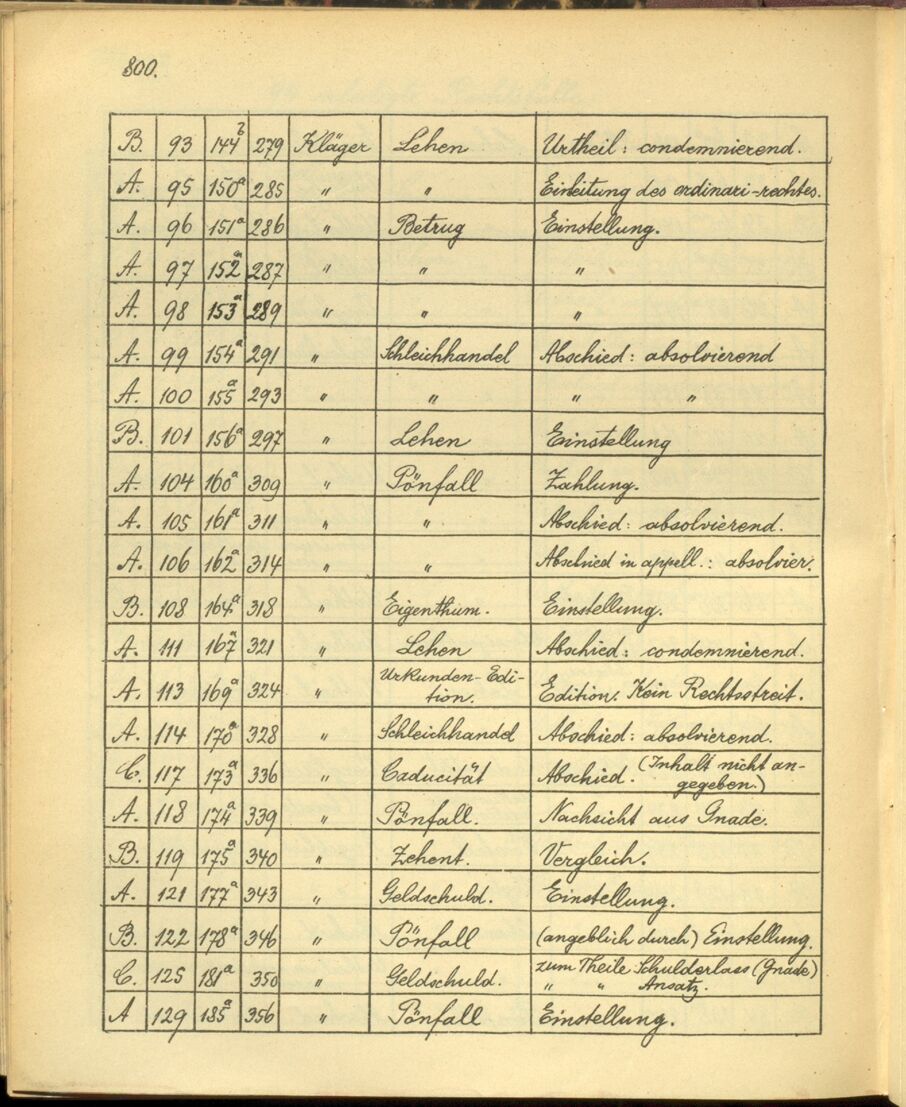 800.
B. 93 144b 279 Kläger Lehen Urtheil: condemnierend.
A. 95 150a 285 " " Einleitung des ordinari-rechtes.
A. 96 151a 286 " Betrug Einstellung.
A. 97 152a 287 " " "
A. 98 153a 289 " " "
A. 99 154a 291 " Schleichhandel Abschied: absolvierend
A. 100 155a 293 " " " "
B. 101 156a 297 " Lehen Einstellung
A. 104 160a 309 " Pönfall Zahlung.
A. 105 161a 311 " " Abschied: absolvierend.
A. 106 162a 314 " " Abschied in appell.: absolvier.
B. 108 164a 318 " Eigenthum. Einstellung.
A. 111 167a 321 " Lehen Abschied: condemnierend.
A. 113 169a 324 " Urkunden-Edi-
tion. Edition. Kein Rechtsstreit.
A. 114 170a 328 " Schleichhandel Abschied: absolvierend.
C. 117 173a 336 " Caducität Abschied. (Inhalt nicht an-
gegeben.)
A. 118 174a 339 " Pönfall. Nachsicht aus Gnade.
B. 119 175a 340 " Zehent. Vergleich.
A. 121 177a 343 " Geldschuld. Einstellung.
B. 122 178a 346 " Pönfall (angeblich durch) Einstellung.
C. 125 181a 350 " Geldschuld. zum Theile Schulderlass (Gnade)
" " Ansatz.
A 129 185a 356 " Pönfall Einstellung.